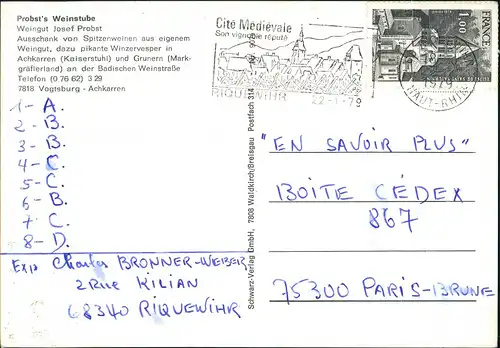 Probst's Weinstube
Weingut Josef Probst
Ausschank von Spitzenweinen aus eigenem
Weingut, dazu pikante Winzervesper in
Achkarren (Kaiserstuhl) und Grunern (Mark-
gräflerland) an der Badischen Weinstraße
Telefon (0 76 62) 3 29
7818 Vogtsburg - Achkarren
Cité Médiévale
Son vignoble réputé
RIQUEWIHR 22-1-79
FRANCE
1,00
1979
HAUT-RHIN
1- A.
2- B.
3- B.
4- C.
5- C.
6- B.
7- C.
8- D.
Exp Charles BRONNER-WEBER
2 Rue KILIAN
68340 RIQUEWIHR
Schwarz-Verlag GmbH, 7808 Waldkirch/Breisgau Postfach 314
"EN SAVOIR PLUS"
BOITE CÉDEX
867
75300 PARIS-BRUNE